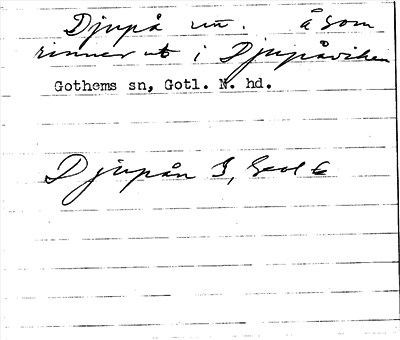 Djupå nn. å som
rinner ut i Djupåviken
Gothems sn, Gotl. N. hd.
Djupån J, Geol k